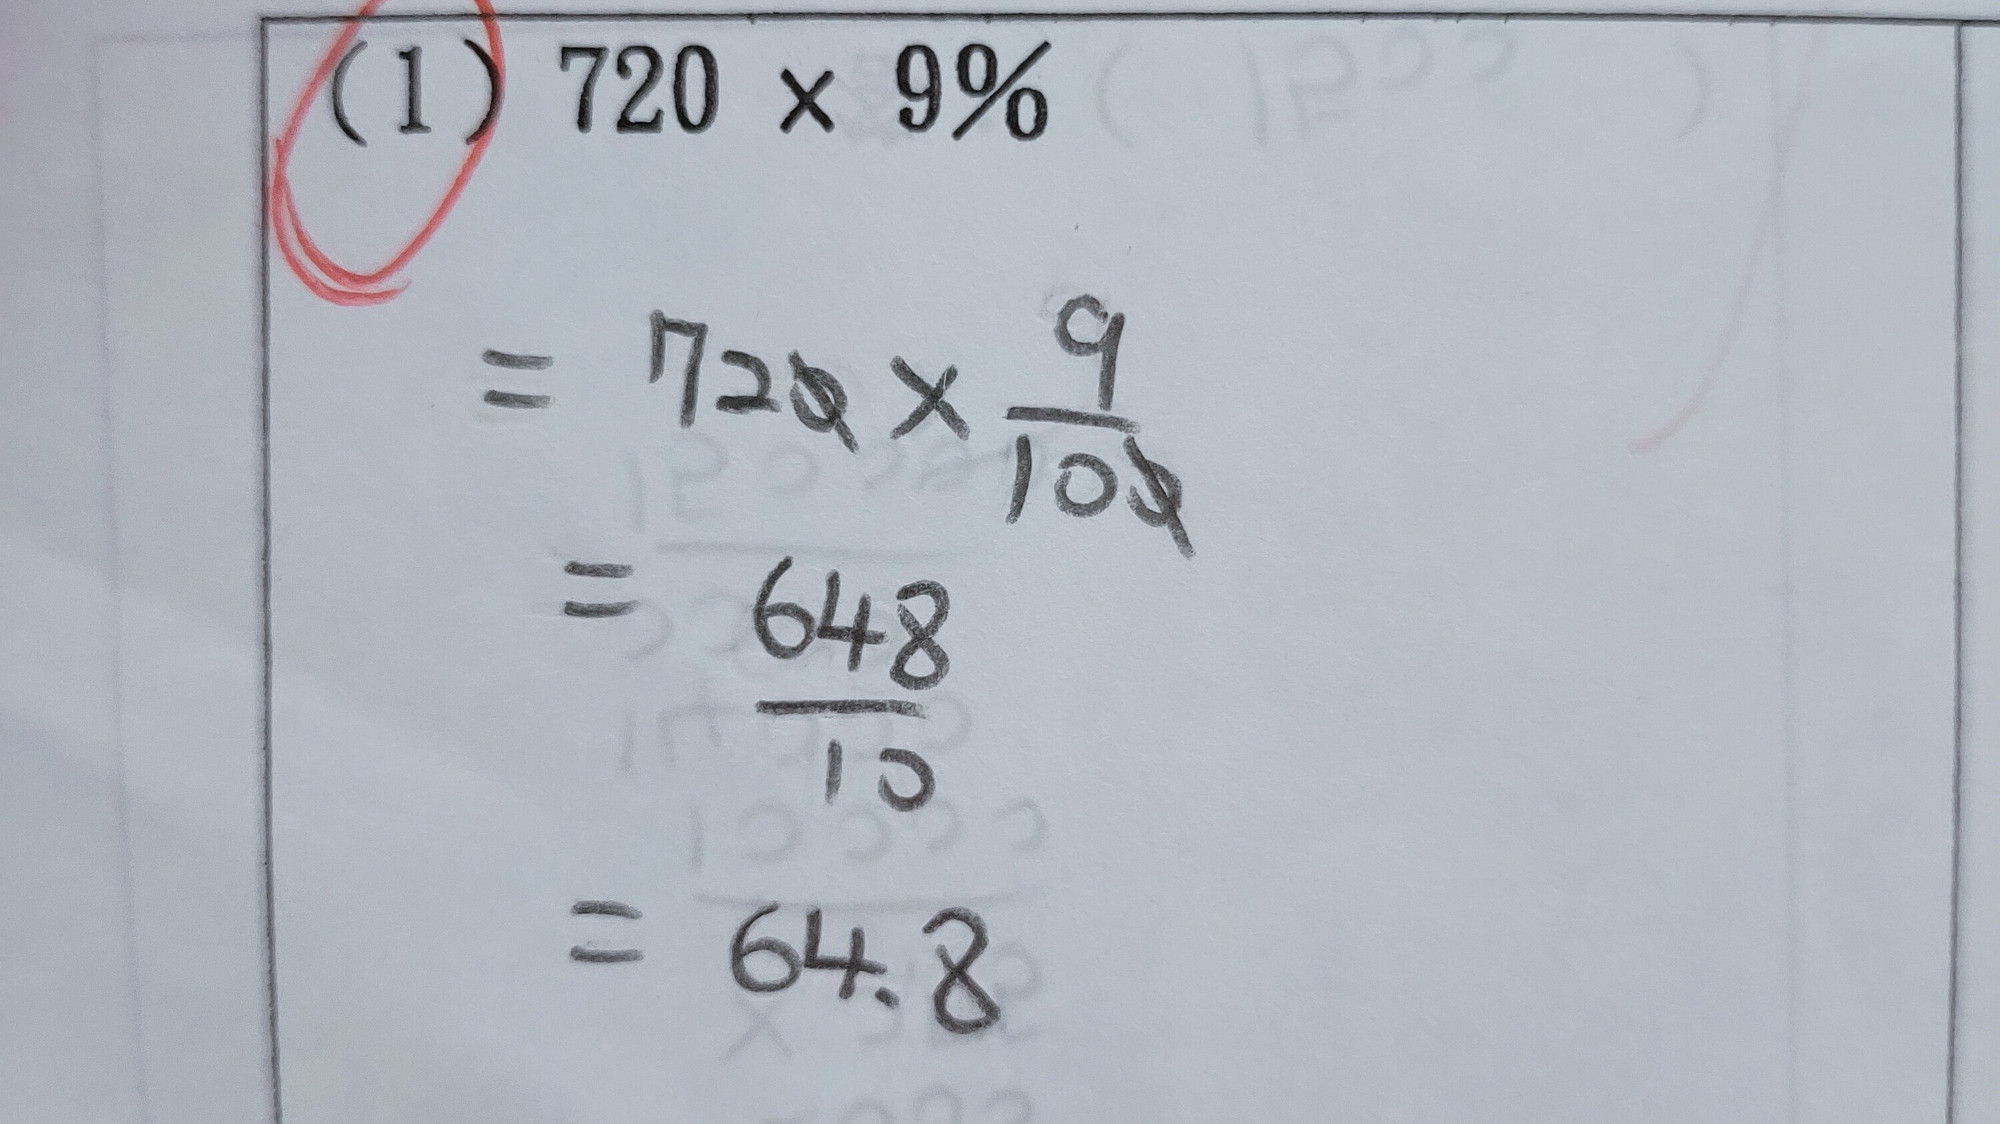 (1) 720 × 9%
= 720 × 9/100
= 648/10
= 64.8